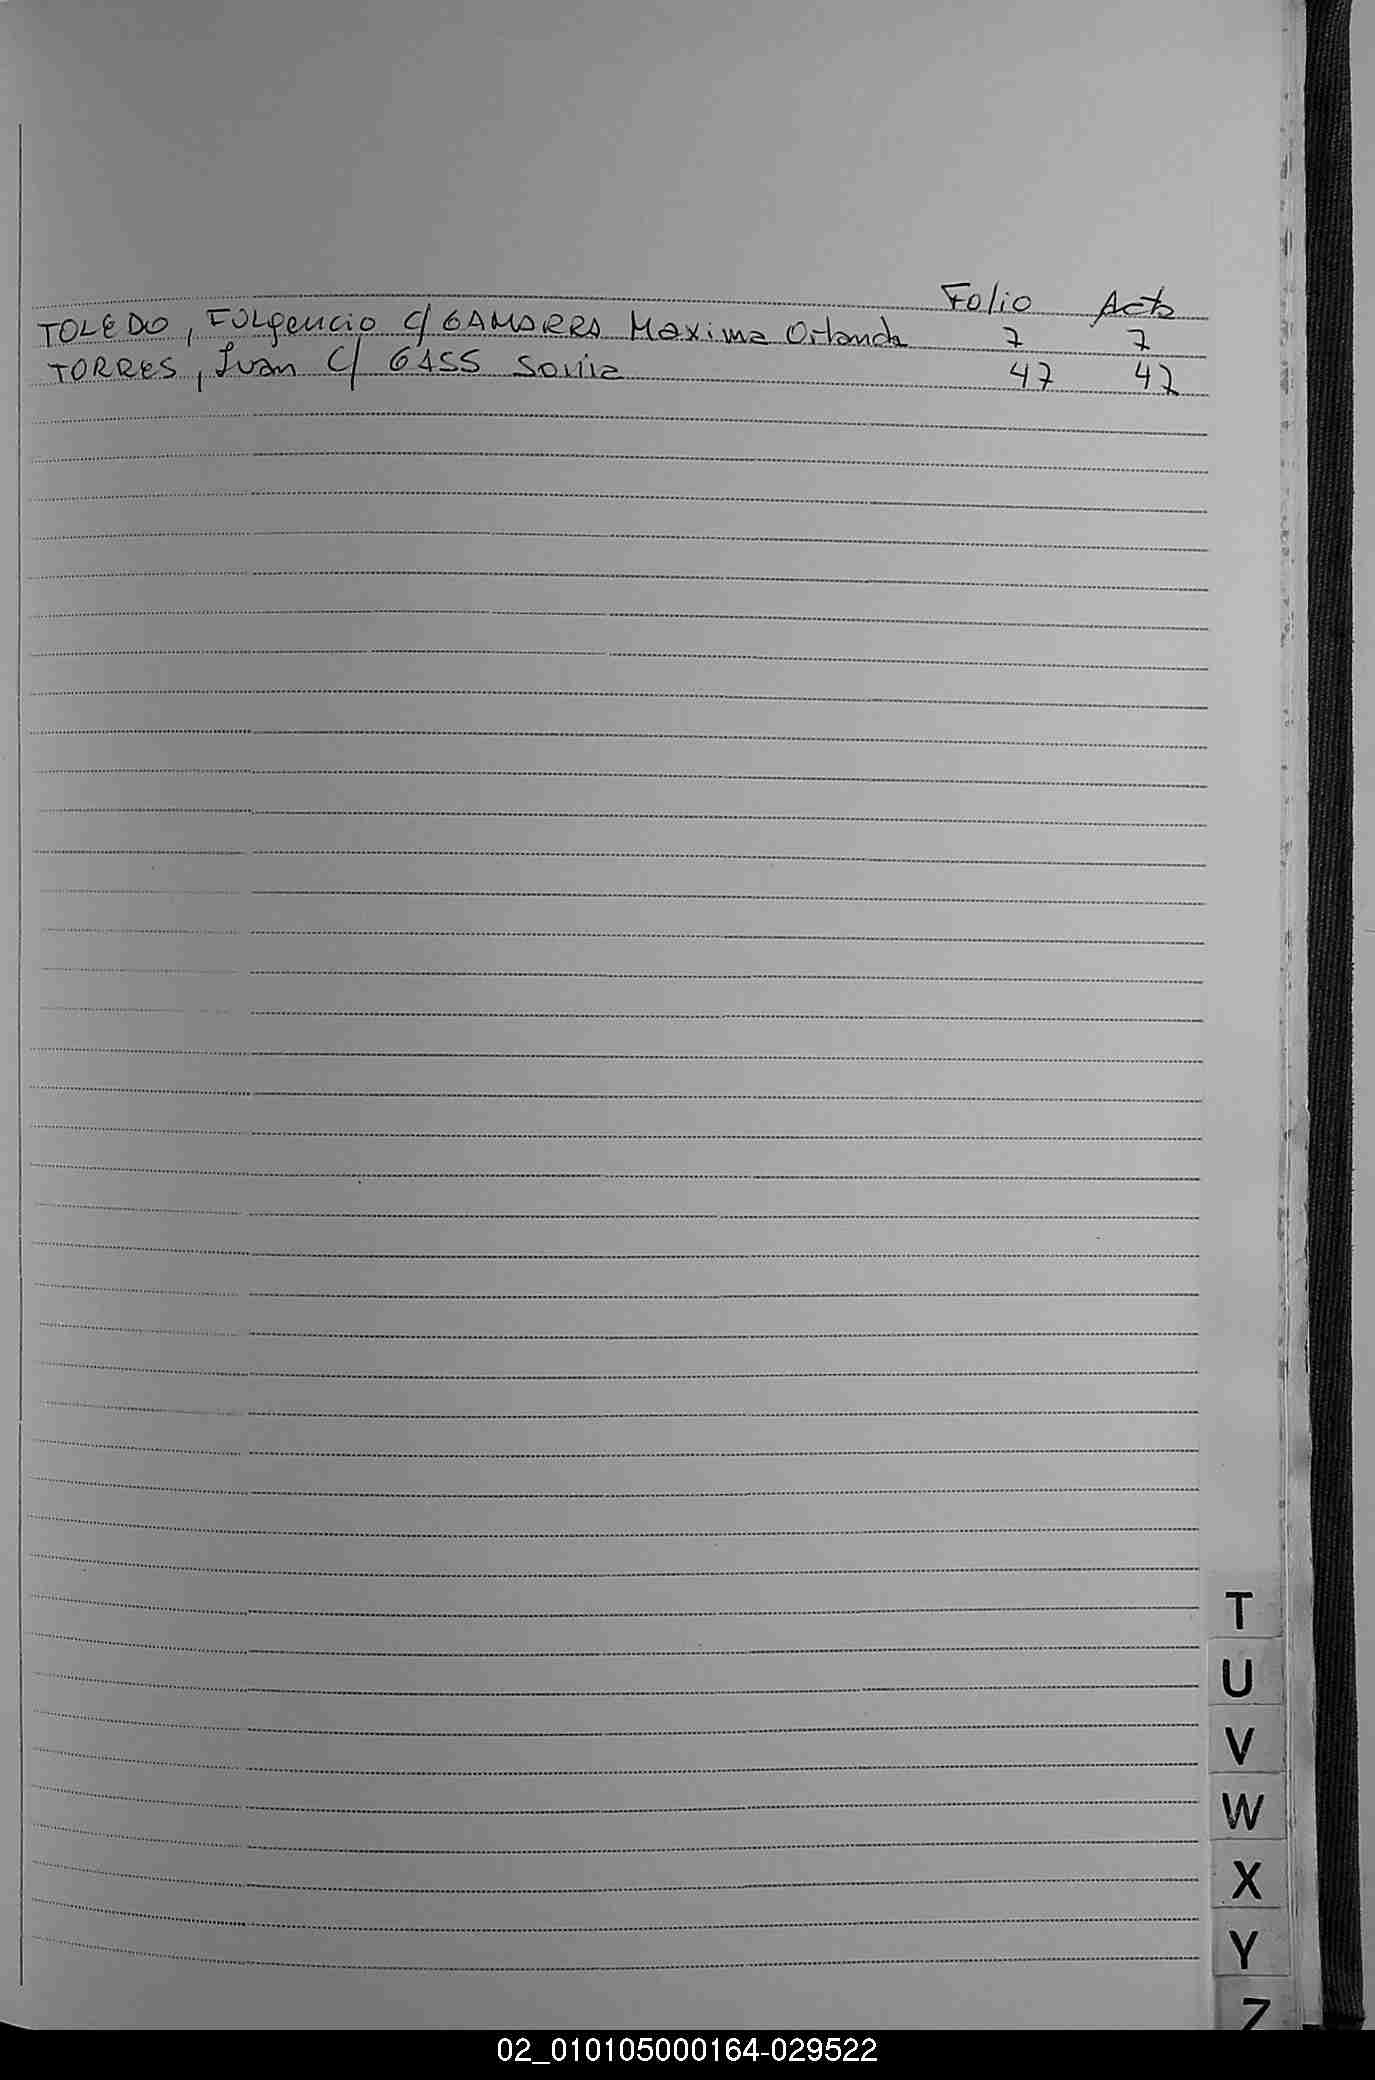 Folio Acta
TOLEDO, FULgencio C/ GAMARRA Maxima Orlanda 7 7
TORRES, Juan C/ GASS 47 47
T
U
V
W
X
Y
Z
02_010105000164-029522